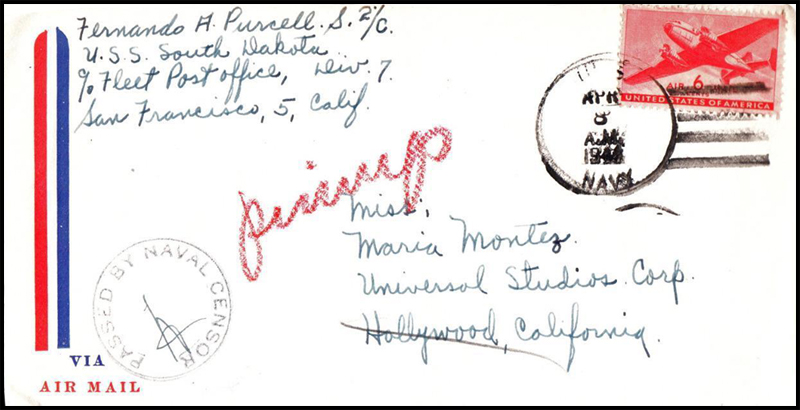 Fernando H. Purcell. S. 2/C.
U.S.S. South Dakota
℅ Fleet Post office, Div. 7.
San Francisco, 5, Calif.
AIR 6
UNITED STATES OF AMERICA
APR
8
A.M.
1944
NAVY
pinup
Miss,
Maria Montez.
Universal Studios Corp.
Hollywood, California.
PASSED BY NAVAL CENSOR
VIA
AIR MAIL